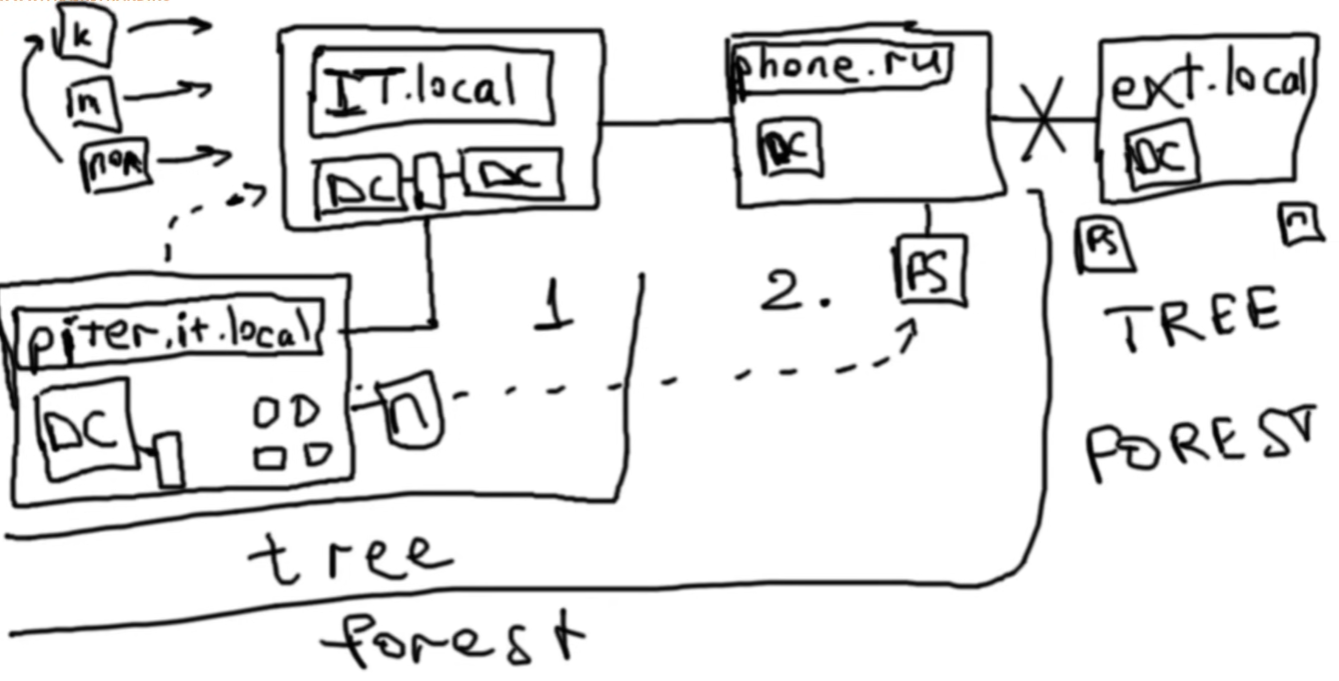 k
m
пол
IT.local
DC
DC
phone.ru
DC
ext.local
DC
FS
FS
п
1
2.
piter.it.local
DC
П
TREE
FOREST
tree
forest